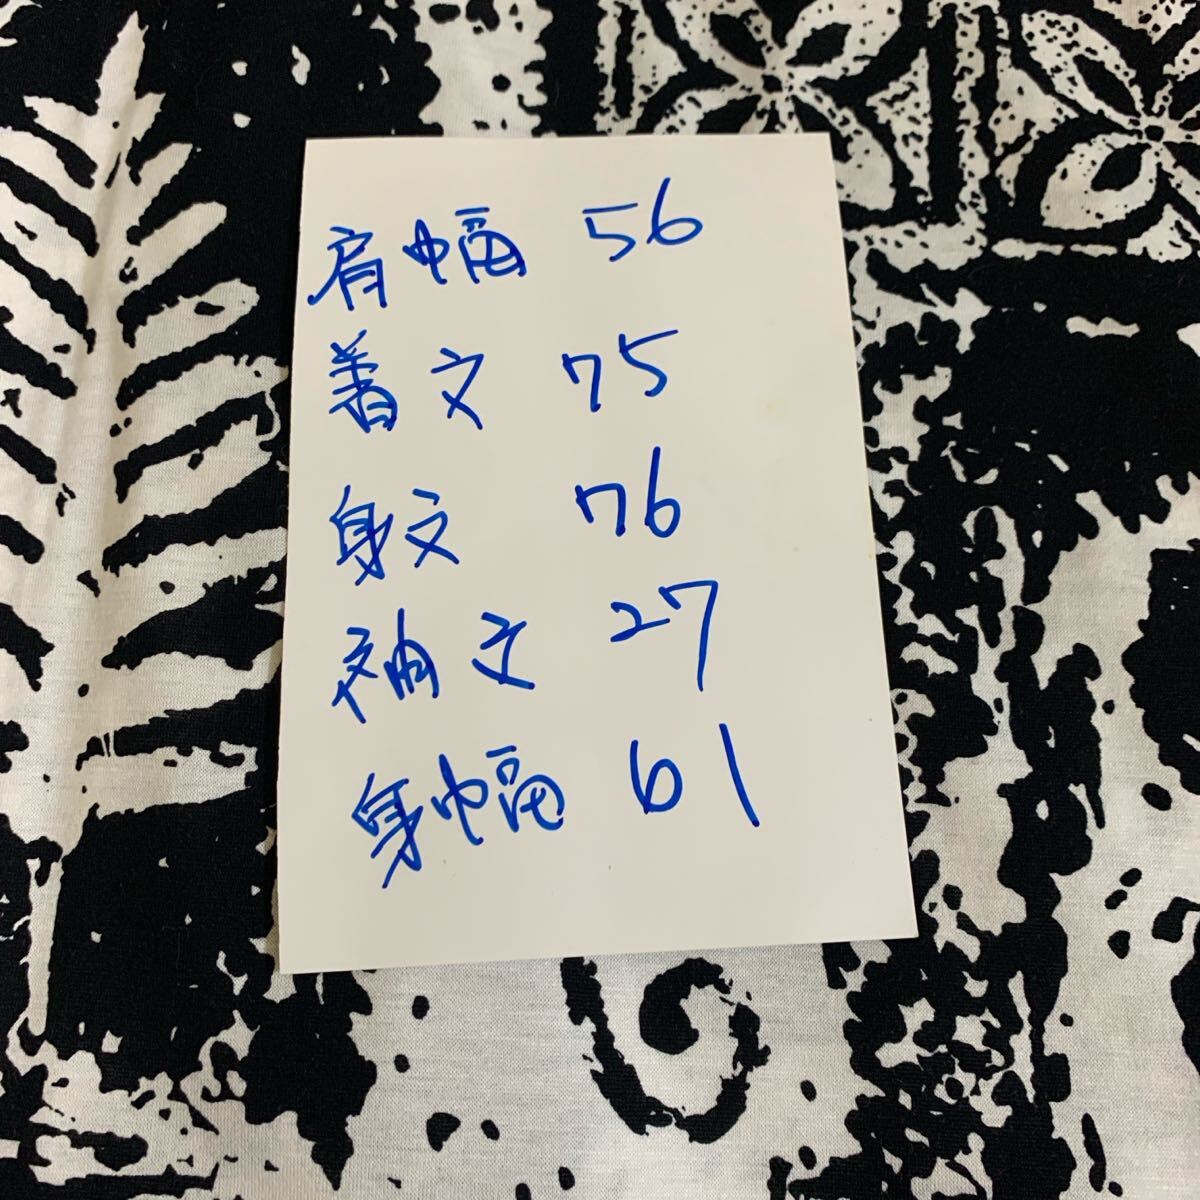 肩幅 56
着丈 75
身丈 76
袖丈 27
身幅 61